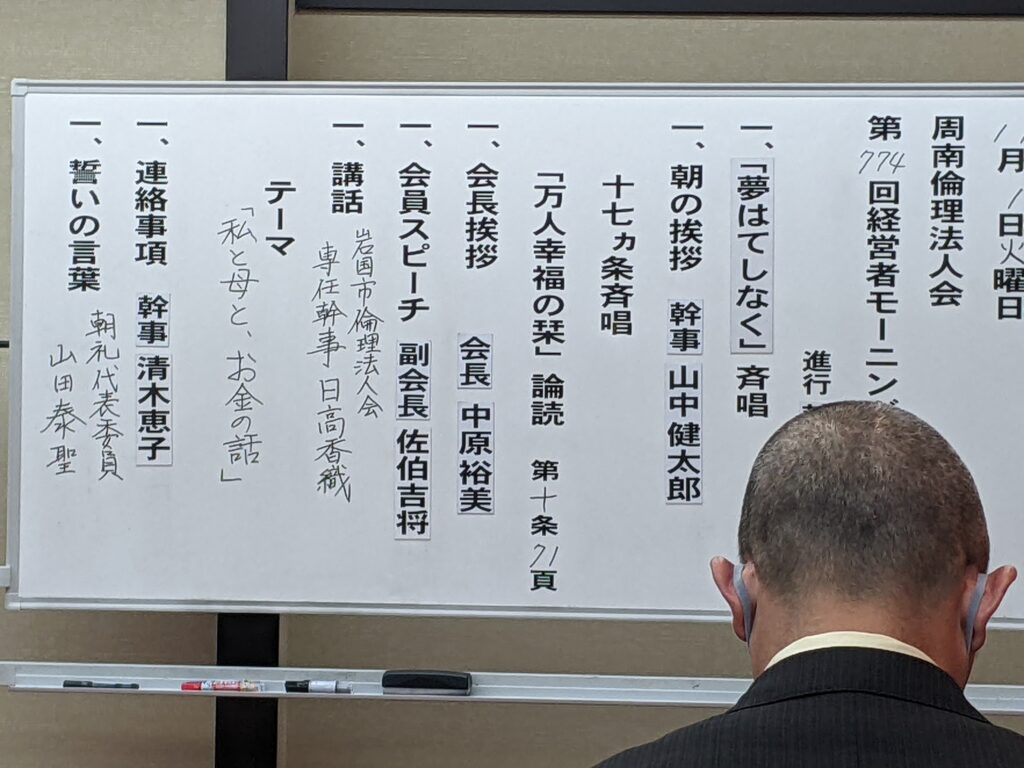 月1日火曜日
周南倫理法人会
第774回経営者モーニン
進行
一、「夢はてしなく」斉唱
一、朝の挨拶 幹事 山中健太郎
十七ヵ条斉唱
「万人幸福の栞」論読 第十条71頁
一、会長挨拶 会長 中原裕美
一、会員スピーチ 副会長 佐伯吉将
一、講話 岩国市倫理法人会
専任幹事 日高香織
テーマ
「私と母と、お金の話」
一、連絡事項 幹事 清木恵子
一、誓いの言葉 朝礼代表委員
山田泰聖